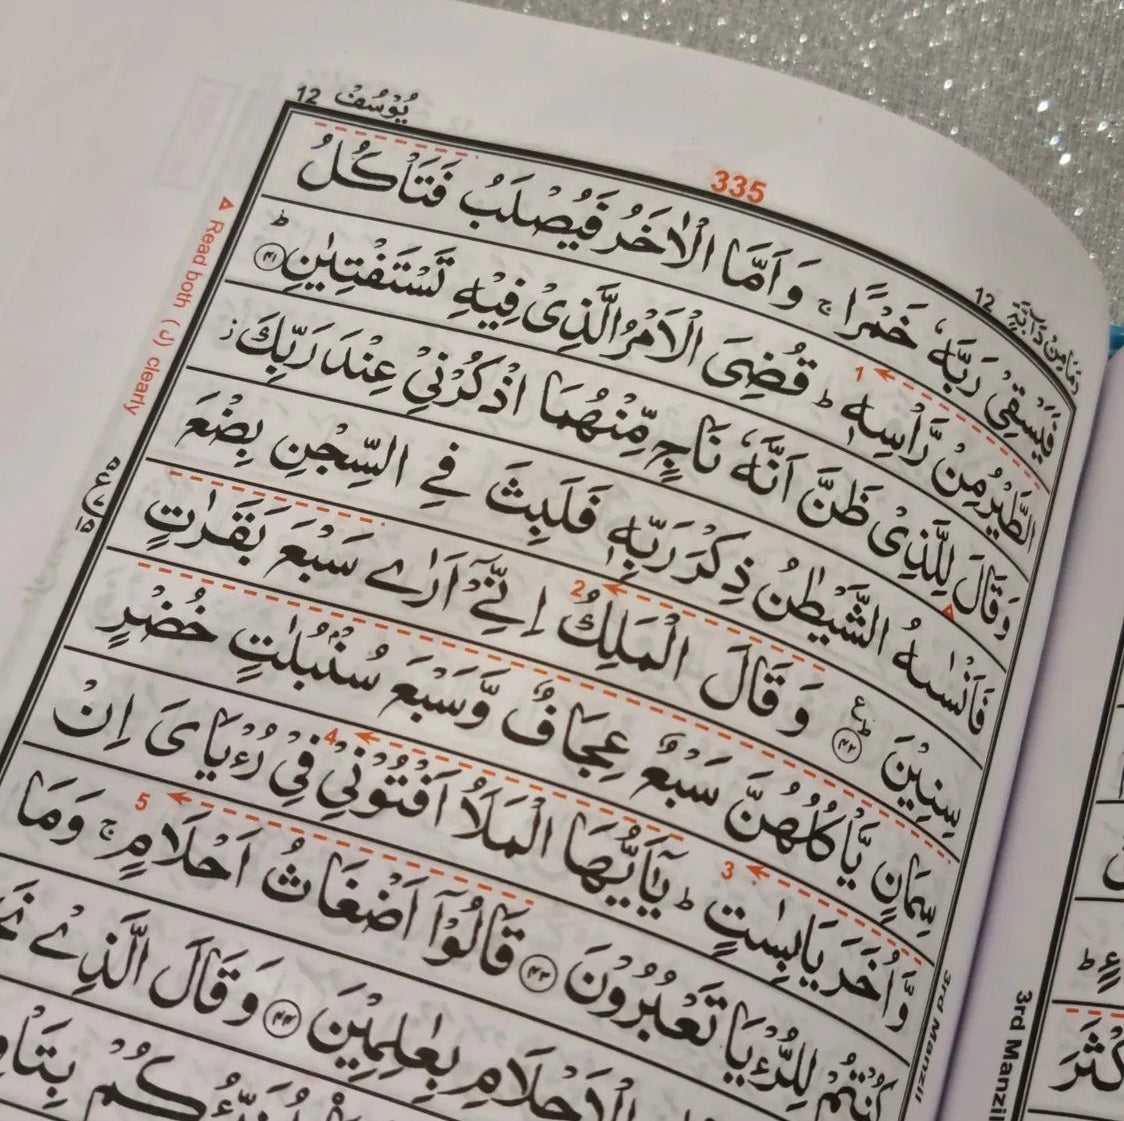 يُوْسُفْ 12
335
وَمَا مِنْ دَآبَّةٍ 12
فَيَسْقِىْ رَبَّهٗ خَمْرًا ۚ وَاَمَّا الْاٰخَرُ فَيُصْلَبُ فَتَاْكُلُ
الطَّيْرُ مِنْ رَّاْسِهٖ ؕ قُضِىَ الْاَمْرُ الَّذِىْ فِيْهِ تَسْتَفْتِيٰنِ ؕ ﴿۴۱﴾
وَقَالَ لِلَّذِىْ ظَنَّ اَنَّهٗ نَاجٍ مِّنْهُمَا اذْكُرْنِىْ عِنْدَ رَبِّكَ ز
فَاَنْسٰىهُ الشَّيْطٰنُ ذِكْرَ رَبِّهٖ فَلَبِثَ فِى السِّجْنِ بِضْعَ
سِنِيْنَ ﴿۴۲﴾ ع وَقَالَ الْمَلِكُ اِنِّىْۤ اَرٰى سَبْعَ بَقَرٰتٍ
سِمَانٍ يَّاْكُلُهُنَّ سَبْعٌ عِجَافٌ وَّسَبْعَ سُنْۢبُلٰتٍ خُضْرٍ
وَّاُخَرَ يٰبِسٰتٍ ؕ يٰۤاَيُّهَا الْمَلَاُ اَفْتُوْنِىْ فِىْ رُءْيَاىَ اِنْ
كُنْتُمْ لِلرُّءْيَا تَعْبُرُوْنَ ﴿۴۳﴾ قَالُوْۤا اَضْغَاثُ اَحْلَامٍ ۚ وَمَا
الْاَحْلَامِ بِعٰلِمِيْنَ ﴿۴۴﴾ وَقَالَ الَّذِىْ
1
2
3
4
5
Read both (ن) clearly
3rd Manzil
3rd Manzil